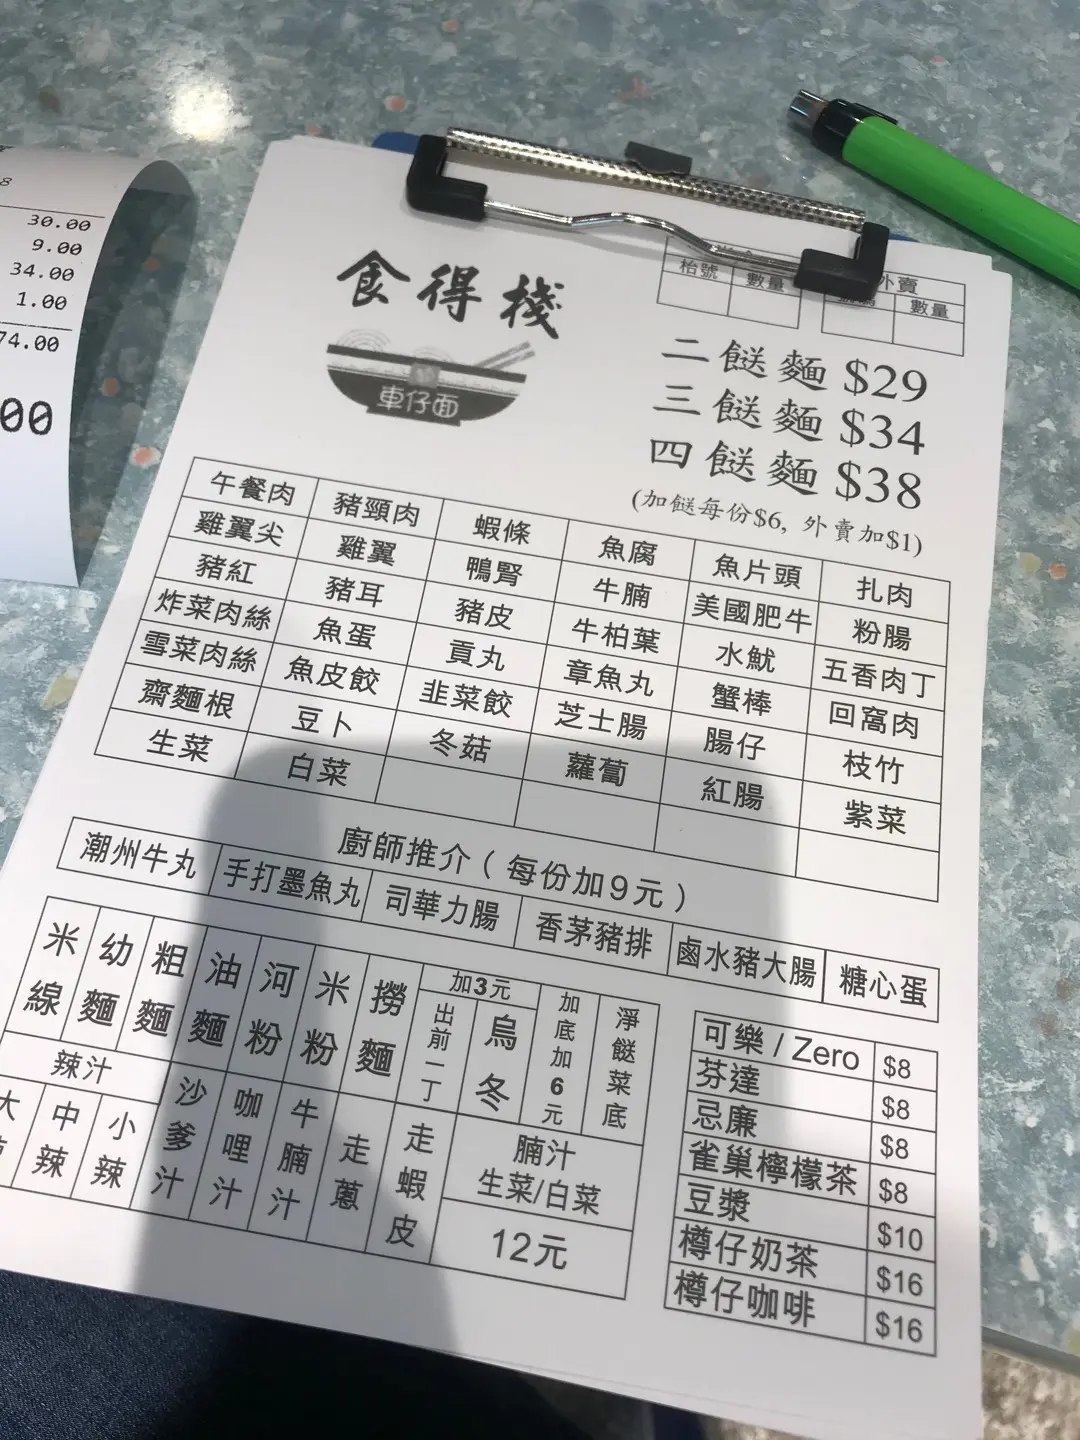 8
30.00
9.00
34.00
1.00
74.00
00
食得棧
車仔面
枱號 數量
外賣
數量
二餸麵 $29
三餸麵 $34
四餸麵 $38
(加餸每份$6, 外賣加$1)
午餐肉 豬頸肉 蝦條 魚腐 魚片頭 扎肉
雞翼尖 雞翼 鴨腎 牛腩 美國肥牛 粉腸
豬紅 豬耳 豬皮 牛柏葉 水魷 五香肉丁
炸菜肉絲 魚蛋 貢丸 章魚丸 蟹棒 回窩肉
雪菜肉絲 魚皮餃 韭菜餃 芝士腸 腸仔 枝竹
齋麵根 豆卜 冬菇 蘿蔔 紅腸 紫菜
生菜 白菜
廚師推介（每份加9元）
潮州牛丸 手打墨魚丸 司華力腸 香茅豬排 鹵水豬大腸 糖心蛋
米線 幼麵 粗麵 油麵 河粉 米粉 撈麵
加3元
出前一丁 烏冬
加底加6元
淨餸菜底
辣汁
大 中辣 小辣
沙爹汁 咖哩汁 牛腩汁 走蔥 走蝦皮
腩汁
生菜/白菜
12元
可樂 / Zero $8
芬達 $8
忌廉 $8
雀巢檸檬茶 $8
豆漿 $10
樽仔奶茶 $16
樽仔咖啡 $16